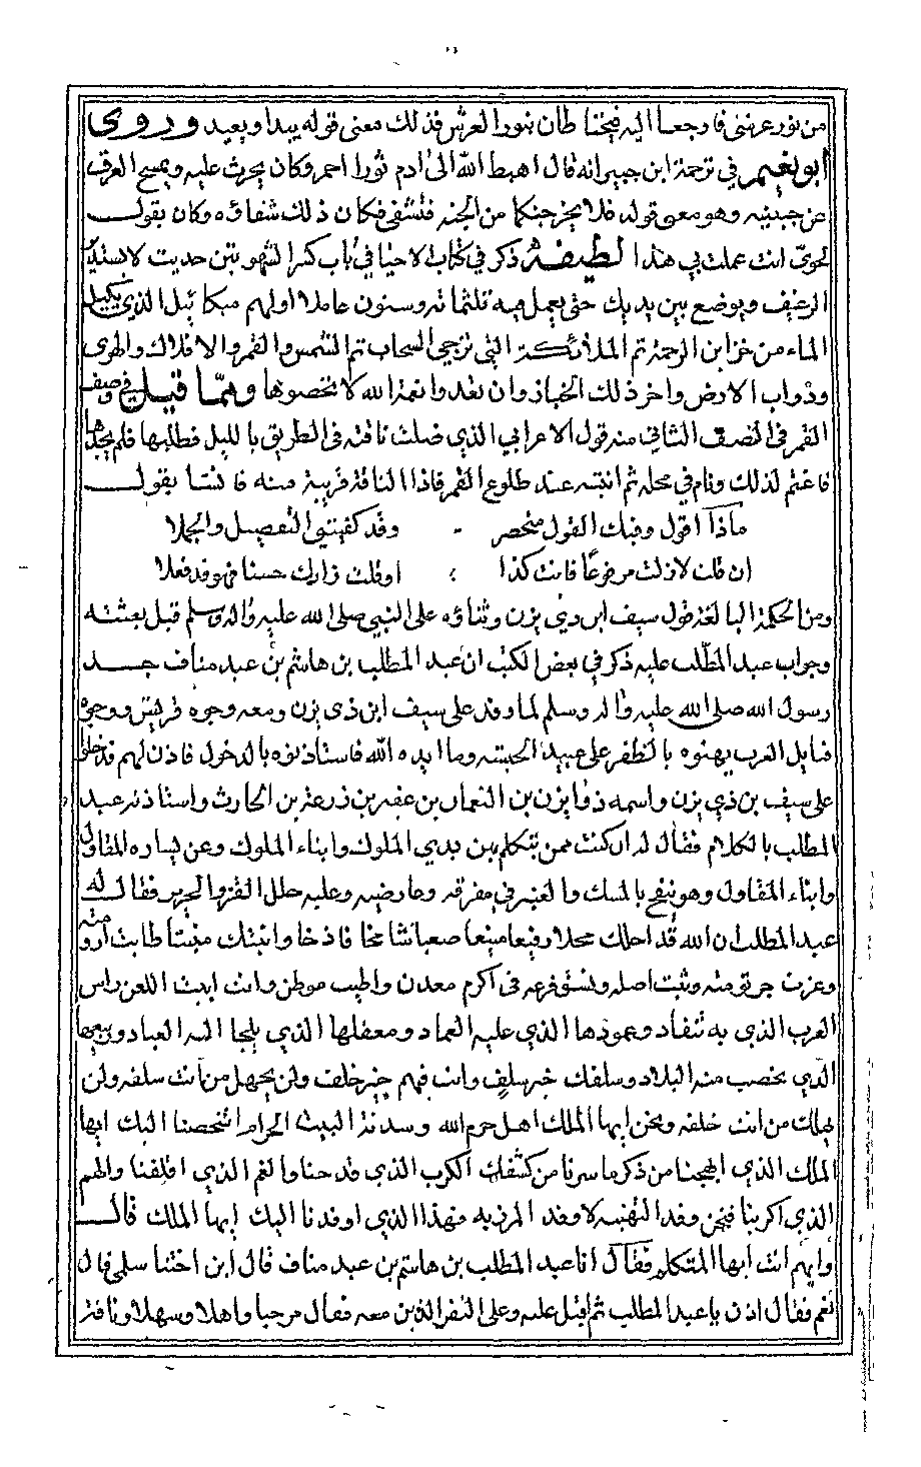 من نور عرشي فارجعا اليه فيختلطان بنور العرش فذلك معنى قوله يبدا ويعيد وروى
ابو نعيم في ترجمة ابن جبير انه قال اهبط الله الى ادم ثورا احمر وكان يحرث عليه ويمسح العرق
عن جبينه وهو معنى قوله فلا يخرجنكما من الجنة فتشقى فكان ذلك شقاؤه وكان يقول
لحوى انت عملت بي هذا لطيفة ذكر في كتاب الاحيا في باب كسر الشهوتين حديث لا يستدير
الرغيف ويوضع بين يديك حتى يعمل فيه ثلثمائه وستون عاملا اولهم ميكائيل الذي يكيل
الماء من خزاين الرحمة ثم الملائكة التي تزجي السحاب ثم الشمس والقمر والافلاك والهوى
ودواب الارض واخر ذلك الخباز وان تعدوا نعمة الله لا تحصوها ومما قيل في وصف
القمر في النصف الثاني منه قول الاعرابي الذي ضلت ناقته في الطريق بالليل فطلبها فلم يجدها
فاغتم لذلك ونام في محله ثم انتبه عند طلوع القمر فاذا الناقة قريبة منه فانشا يقول
ماذا اقول وفيك القول منحصر - وقد كفيتني التفصيل والجملا
ان قلت لازلت مرفوعا فانت كذا ؛ او قلت زانك حسنا فهو قد فعلا
ومن الحكمة البالغة قول سيف ابن ذي يزن وثناؤه على النبي صلى الله عليه واله وسلم قبل بعثته
وجواب عبد المطلب عليه ذكر في بعض الكتب ان عبد المطلب بن هاشم بن عبد مناف جد
رسول الله صلى الله عليه واله وسلم لما وفد على سيف ابن ذي يزن ومعه وجوه قريش ووجوه
قبايل العرب يهنوه بالظفر على عبيد الحبشه وما ايده الله فاستاذنوه بالدخول فاذن لهم فدخلوا
على سيف بن ذي يزن واسمه ذوا يزن بن النعمان بن عفير بن زرعة بن الحارث واستاذنه عبد
المطلب بالكلام فقال له ان كنت ممن يتكلم بين يدي الملوك وابناء الملوك وعن يساره المقاول
وابناء المقاول وهو ينفح بالمسك والعنبر في مفرقه وعارضيه وعليه حلل القز والحرير فقال له
عبد المطلب ان الله قد احلك محلا رفيعا منيعا صعبا شامخا باذخا وانبتك منبتا طابت ارومته
وعزت جرثومته وثبت اصله وبسق فرعه في اكرم معدن واطيب موطن وانت ابيت اللعن راس
العرب الذي به تنقاد وعمودها الذي عليه العماد ومعقلها الذي يلجا اليه العباد وربيعها
الذي تخصب منه البلاد وسلفك خير سلف وانت فيهم خير خلف ولن يجهل من انت سلفه ولن
يهلك من انت خلفه ونحن ايها الملك اهل حرم الله وسدنة البيت الحرام اشخصنا اليك ايها
الملك الذي ابهجنا من ذكر ما سرنا من كشفك الكرب الذي فدحنا والغم الذي اقلقنا والهم
الذي اكربنا فنحن وفد التهنيه لا وفد المرزيه فهذا الذي اوفدنا اليك ايها الملك قال
وايهم انت ايها المتكلم فقال انا عبد المطلب بن هاشم بن عبد مناف قال ابن اختنا سلمى قال
نعم فقال ادن يا عبد المطلب ثم اقبل عليه وعلى النفر الذين معه فقال مرحبا واهلا وسهلا وناقة